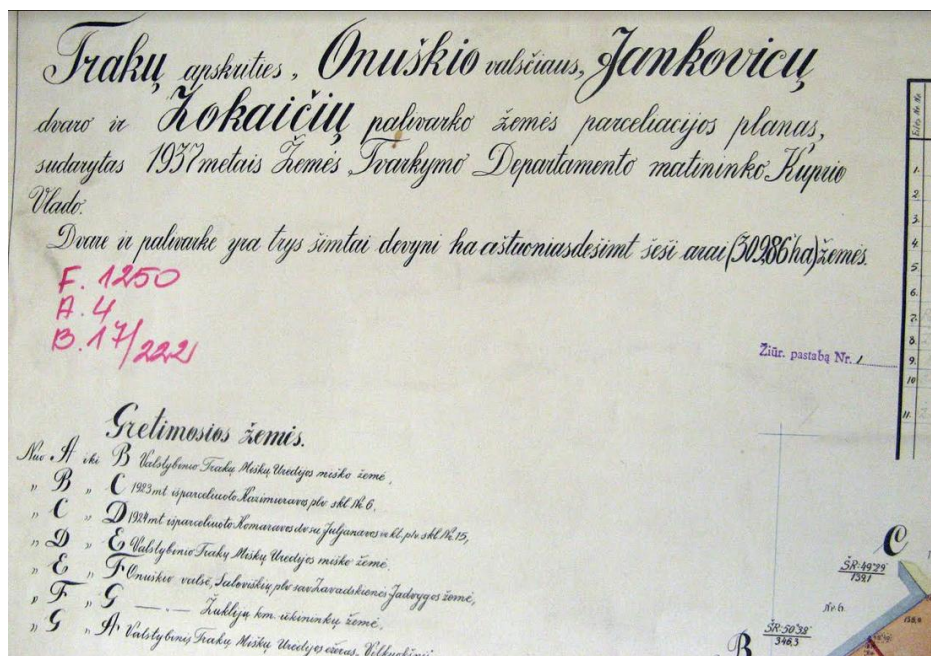 Trakų apskrities, Onuškio valsčiaus, Jankovicų
dvaro ir Žokaičių palivarko žemės parceliacijos planas,
sudarytas 1937 metais Žemės Tvarkymo Departamento matininko Kuprio
Vlado.
Dvare ir palivarke yra trys šimtai devyni ha aštuoniasdešimt šeši arai (309,86 ha) žemės.
F. 1250
A. 4
B. 17/222
Žiūr. pastabą Nr. 1
Gretimosios žemės.
Nuo A iki B Valstybinio Trakų Miškų Urėdijos miško žemė,
„ B „ C 1923 mt išparceliuoto Kazimieravos plv skl № 6,
„ C „ D 1924 mt išparceliuoto Komaravos dv su Juljanavos ir kt. plv. skl № 15,
„ D „ E Valstybinio Trakų Miškų Urėdijos miško žemė,
„ E „ F Onuškio valsč, plv sav Zavadskienės Jadvygos žemė,
„ F „ G —„— km. ūkininkų žemė,
„ G „ A Valstybinis Trakų Miškų Urėdijos ežeras,
1.
2.
3.
4.
5.
6.
7.
8.
9.
10
11.
C
ŠR:49°29'
139,1
№ 6.
B
ŠR:50°38'
346,3